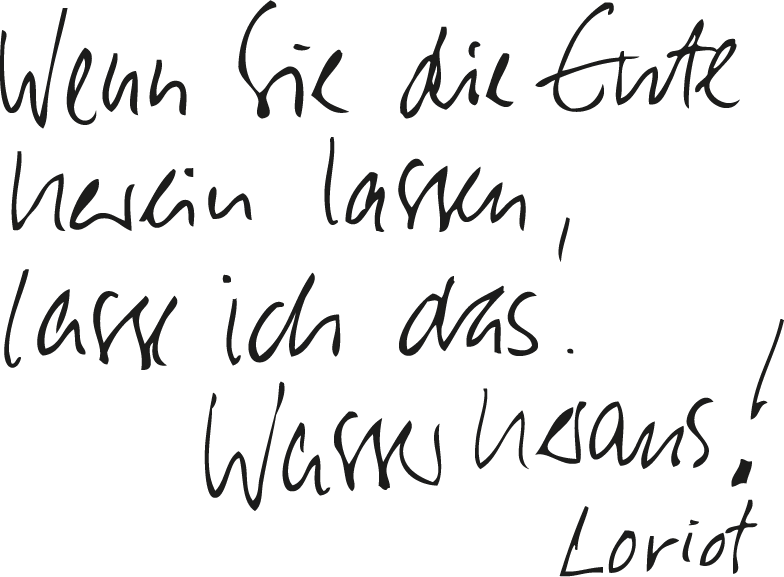 Wenn Sie die Ente
herein lassen,
lasse ich das.
Wasser heraus!
Loriot